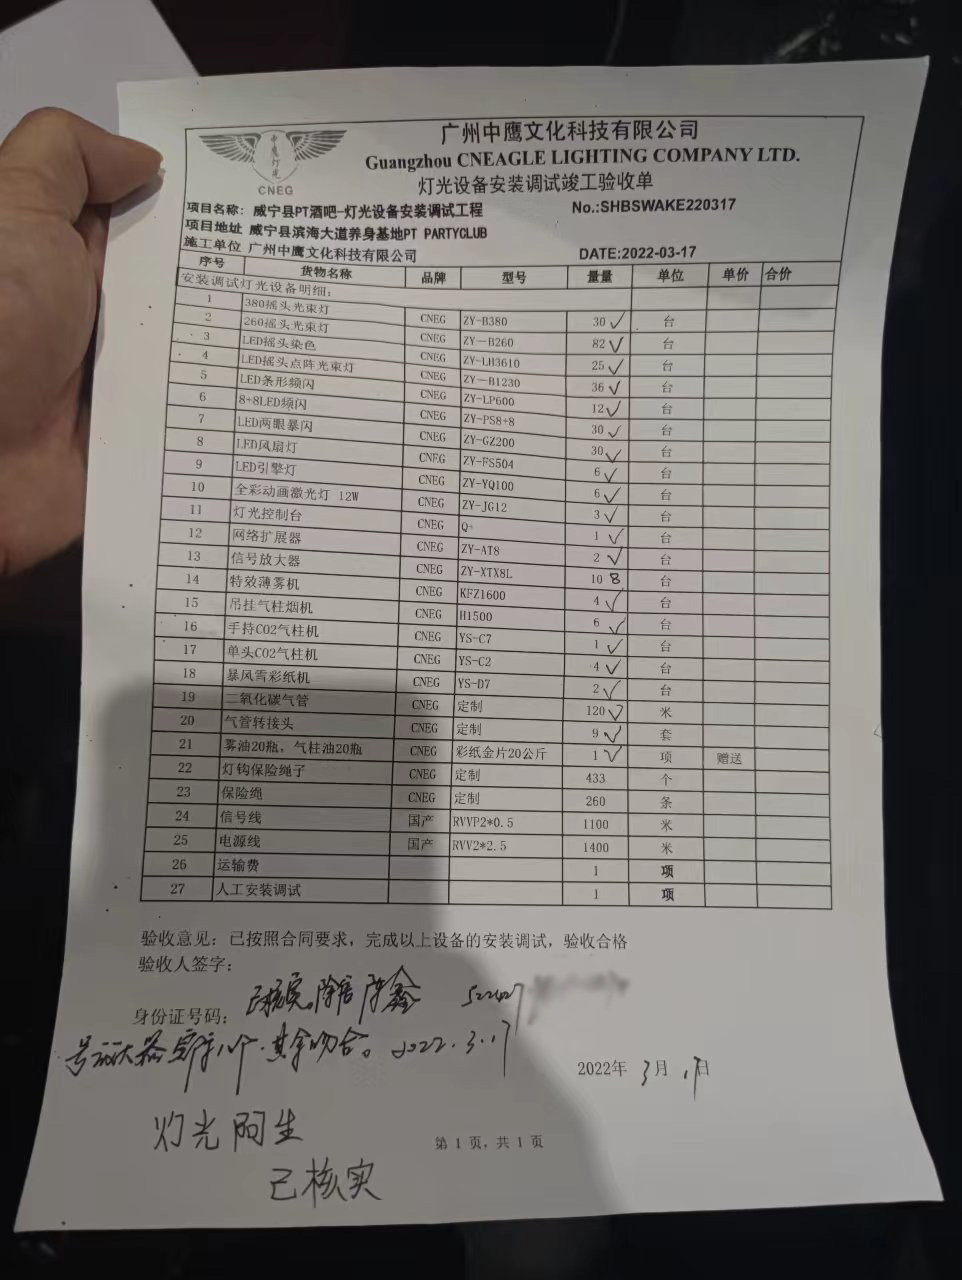 中鹰灯光
CNEG
广州中鹰文化科技有限公司
Guangzhou CNEAGLE LIGHTING COMPANY LTD.
灯光设备安装调试竣工验收单
项目名称：威宁县PT酒吧-灯光设备安装调试工程 No.:SHBSWAKE220317
项目地址 威宁县滨海大道养身基地PT PARTYCLUB
施工单位 广州中鹰文化科技有限公司 DATE:2022-03-17
序号 货物名称 品牌 型号 量量 单位 单价 合价
安装调试灯光设备明细：
1 380摇头光束灯 CNEG ZY-B380 30 ✓ 台
2 260摇头光束灯 CNEG ZY-B260 82 ✓ 台
3 LED摇头染色 CNEG ZY-LH3610 25 ✓ 台
4 LED摇头点阵光束灯 CNEG ZY-B1230 36 ✓ 台
5 LED条形频闪 CNEG ZY-LP600 12 ✓ 台
6 8+8LED频闪 CNEG ZY-PS8+8 30 ✓ 台
7 LED两眼暴闪 CNEG ZY-GZ200 30 ✓ 台
8 LED风扇灯 CNEG ZY-FS504 6 ✓ 台
9 LED引擎灯 CNEG ZY-YQ100 6 ✓ 台
10 全彩动画激光灯 12W CNEG ZY-JG12 3 ✓ 台
11 灯光控制台 CNEG 1 ✓ 台
12 网络扩展器 CNEG ZY-AT8 2 ✓ 台
13 信号放大器 CNEG ZY-XTX8L 10 8 台
14 特效薄雾机 CNEG KFZ1600 4 ✓ 台
15 吊挂气柱烟机 CNEG H1500 6 ✓ 台
16 手持CO2气柱机 CNEG YS-C7 1 ✓ 台
17 单头CO2气柱机 CNEG YS-C2 4 ✓ 台
18 暴风雪彩纸机 CNEG YS-D7 2 ✓ 台
19 二氧化碳气管 CNEG 定制 120 ✓ 米
20 气管转接头 CNEG 定制 9 ✓ 套
21 雾油20瓶，气柱油20瓶 CNEG 彩纸金片20公斤 1 ✓ 项 赠送
22 灯钩保险绳子 CNEG 定制 433 个
23 保险绳 CNEG 定制 260 条
24 信号线 国产 RVVP2*0.5 1100 米
25 电源线 国产 RVV2*2.5 1400 米
26 运输费 1 项
27 人工安装调试 1 项
验收意见：已按照合同要求，完成以上设备的安装调试，验收合格
验收人签字：
身份证号码：
其余吻合。2022.3.17
2022年 3月 17日
灯光阿生
第 1 页，共 1 页
已核实